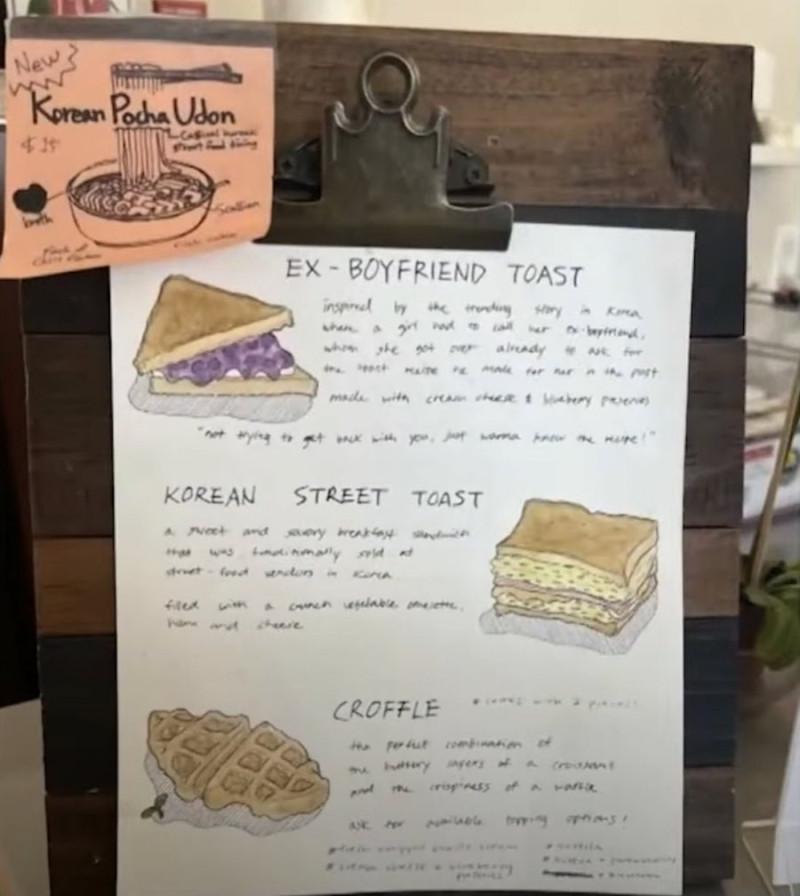 New
Korean Pocha Udon
Casual Korean
street food dining
broth
Scallion
EX-BOYFRIEND TOAST
inspired by the trending story in Korea
where a girl had to call her ex-boyfriend,
whom she got over already to ask for
the toast recipe he made for her in the past
made with cream cheese & blueberry preserves
"not trying to get back with you, just wanna know the recipe!"
KOREAN STREET TOAST
a sweet and savory breakfast sandwich
that was traditionally sold at
street-food vendors in Korea
filled with a crunch vegetable omelette,
ham and cheese
CROFFLE
* comes with 2 pieces!
the perfect combination of
the buttery layers of a croissant
and the crispiness of a waffle
ask for available topping options!
* cream cheese + blueberry
preserves
* nutella